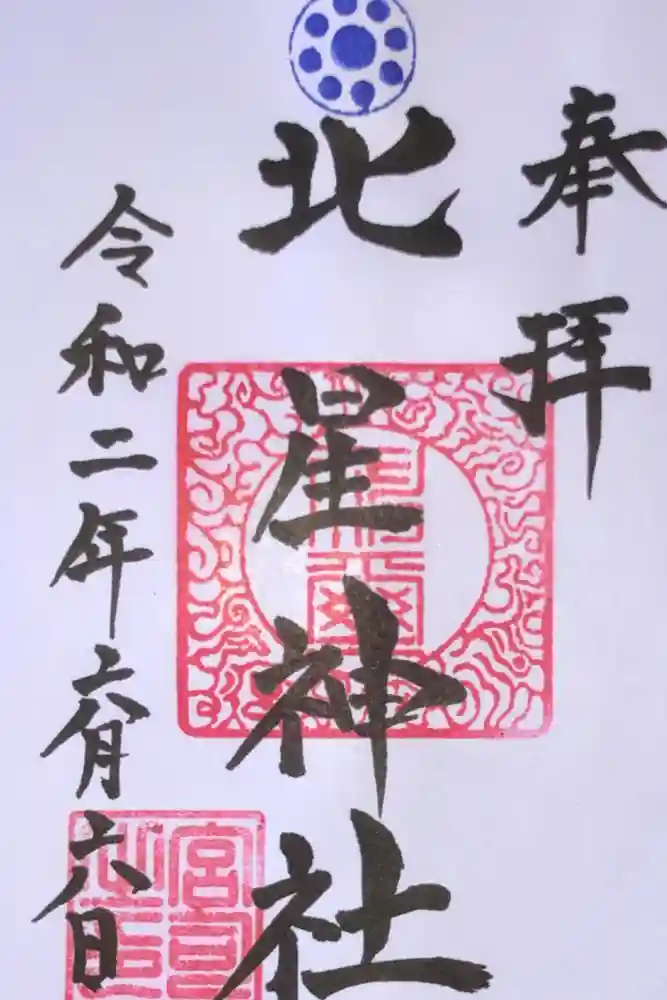 奉拝
北星神社
令和二年六月六日
宮司